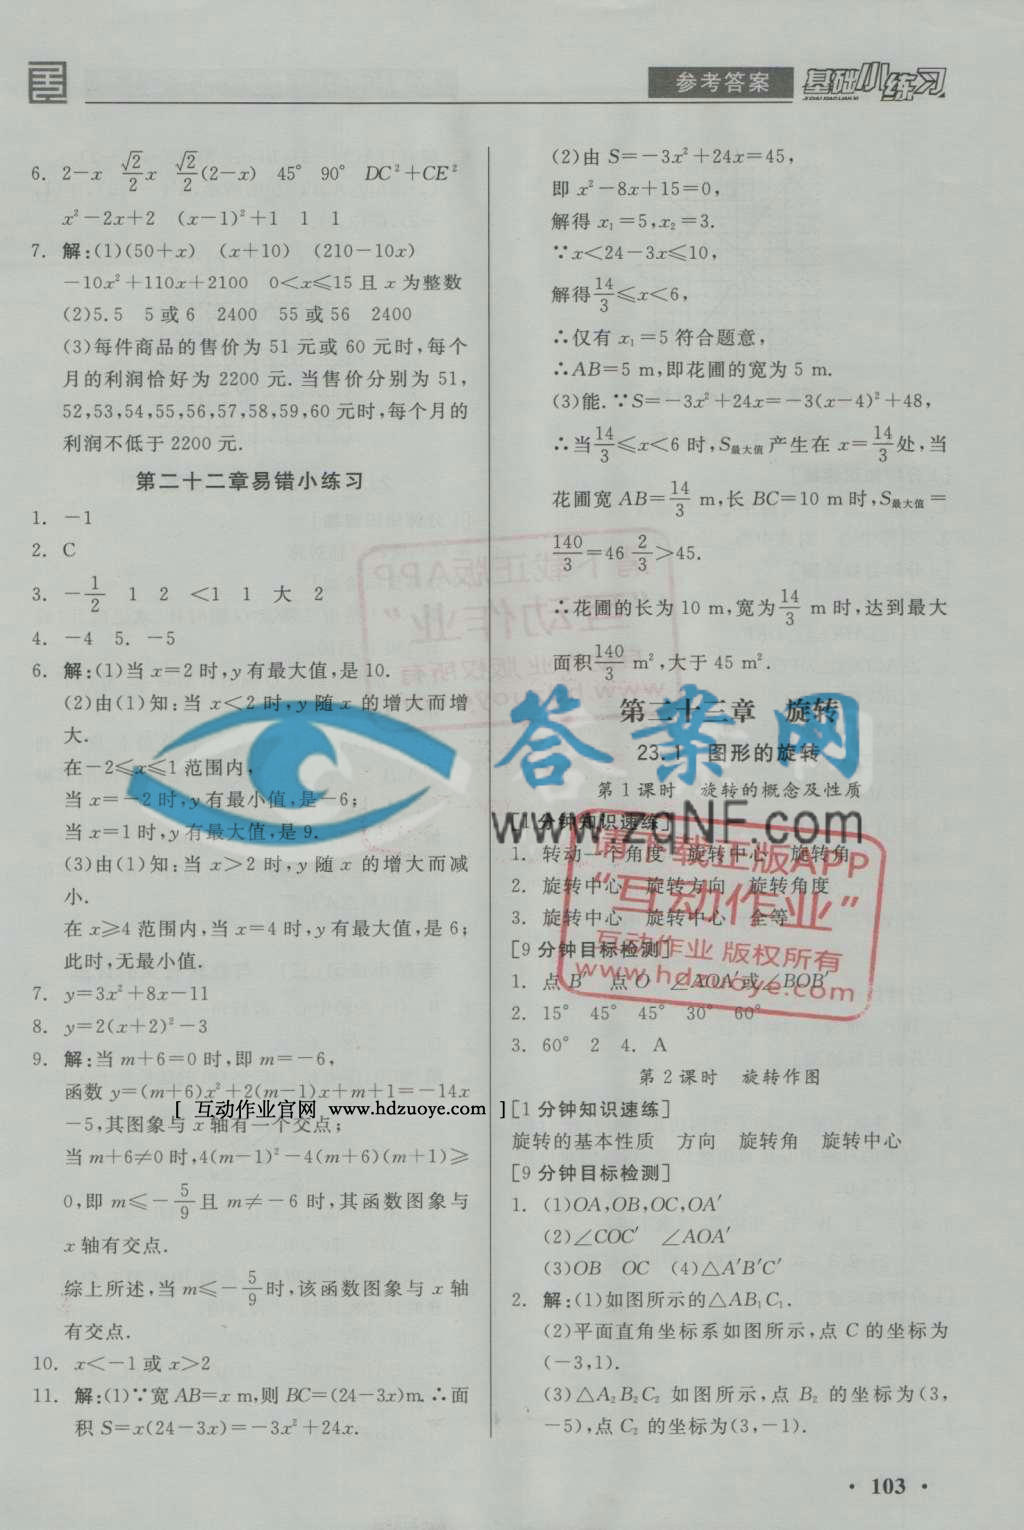 参考答案 基础小练习
6. 2-x √2/2 x √2/2(2-x) 45° 90° DC²+CE²
x²-2x+2 (x-1)²+1 1 1
7. 解:(1)(50+x) (x+10) (210-10x)
-10x²+110x+2100 0<x≤15且x为整数
(2)5.5 5或6 2400 55或56 2400
(3)每件商品的售价为51元或60元时,每个
月的利润恰好为2200元.当售价分别为51,
52,53,54,55,56,57,58,59,60元时,每个月的
利润不低于2200元.
第二十二章易错小练习
1. -1
2. C
3. -1/2 1 2 <1 1 大 2
4. -4 5. -5
6. 解:(1)当x=2时,y有最大值,是10.
(2)由(1)知:当x<2时,y随x的增大而增
大.
在-2≤x≤1范围内,
当x=-2时,y有最小值,是-6;
当x=1时,y有最大值,是9.
(3)由(1)知:当x>2时,y随x的增大而减
小.
在x≥4范围内,当x=4时,y有最大值,是6;
此时,无最小值.
7. y=3x²+8x-11
8. y=2(x+2)²-3
9. 解:当m+6=0时,即m=-6,
函数y=(m+6)x²+2(m-1)x+m+1=-14x
-5,其图象与x轴有一个交点;
当m+6≠0时,4(m-1)²-4(m+6)(m+1)≥
0,即m≤-5/9且m≠-6时,其函数图象与
x轴有交点.
综上所述,当m≤-5/9时,该函数图象与x轴
有交点.
10. x<-1或x>2
11. 解:(1)∵宽AB=x m,则BC=(24-3x)m.∴面
积S=x(24-3x)=-3x²+24x.
(2)由S=-3x²+24x=45,
即x²-8x+15=0,
解得x₁=5,x₂=3.
∵x<24-3x≤10,
解得14/3≤x<6,
∴仅有x₁=5符合题意,
∴AB=5 m,即花圃的宽为5 m.
(3)能.∵S=-3x²+24x=-3(x-4)²+48,
∴当14/3≤x<6时,S最大值产生在x=14/3处,当
花圃宽AB=14/3 m,长BC=10 m时,S最大值=
140/3=46 2/3>45.
∴花圃的长为10 m,宽为14/3 m时,达到最大
面积140/3 m²,大于45 m².
第二十三章 旋转
23.1 图形的旋转
第1课时 旋转的概念及性质
[1分钟知识速练]
1. 转动一个角度 旋转中心 旋转角
2. 旋转中心 旋转方向 旋转角度
3. 旋转中心 旋转中心 全等
[9分钟目标检测]
1. 点B′ 点O ∠AOA′或∠BOB′
2. 15° 45° 45° 30° 60°
3. 60° 2 4. A
第2课时 旋转作图
[1分钟知识速练]
旋转的基本性质 方向 旋转角 旋转中心
[9分钟目标检测]
1. (1)OA,OB,OC,OA′
(2)∠COC′ ∠AOA′
(3)OB OC (4)△A′B′C′
2. 解:(1)如图所示的△AB₁C₁.
(2)平面直角坐标系如图所示,点C的坐标为
(-3,1).
(3)△A₂B₂C₂如图所示,点B₂的坐标为(3,
-5),点C₂的坐标为(3,-1).
· 103 ·
答案网
www.zqNF.com
请下载正版APP
“互动作业”
互动作业 版权所有
www.hdzuoye.com
[ 互动作业官网 www.hdzuoye.com ]